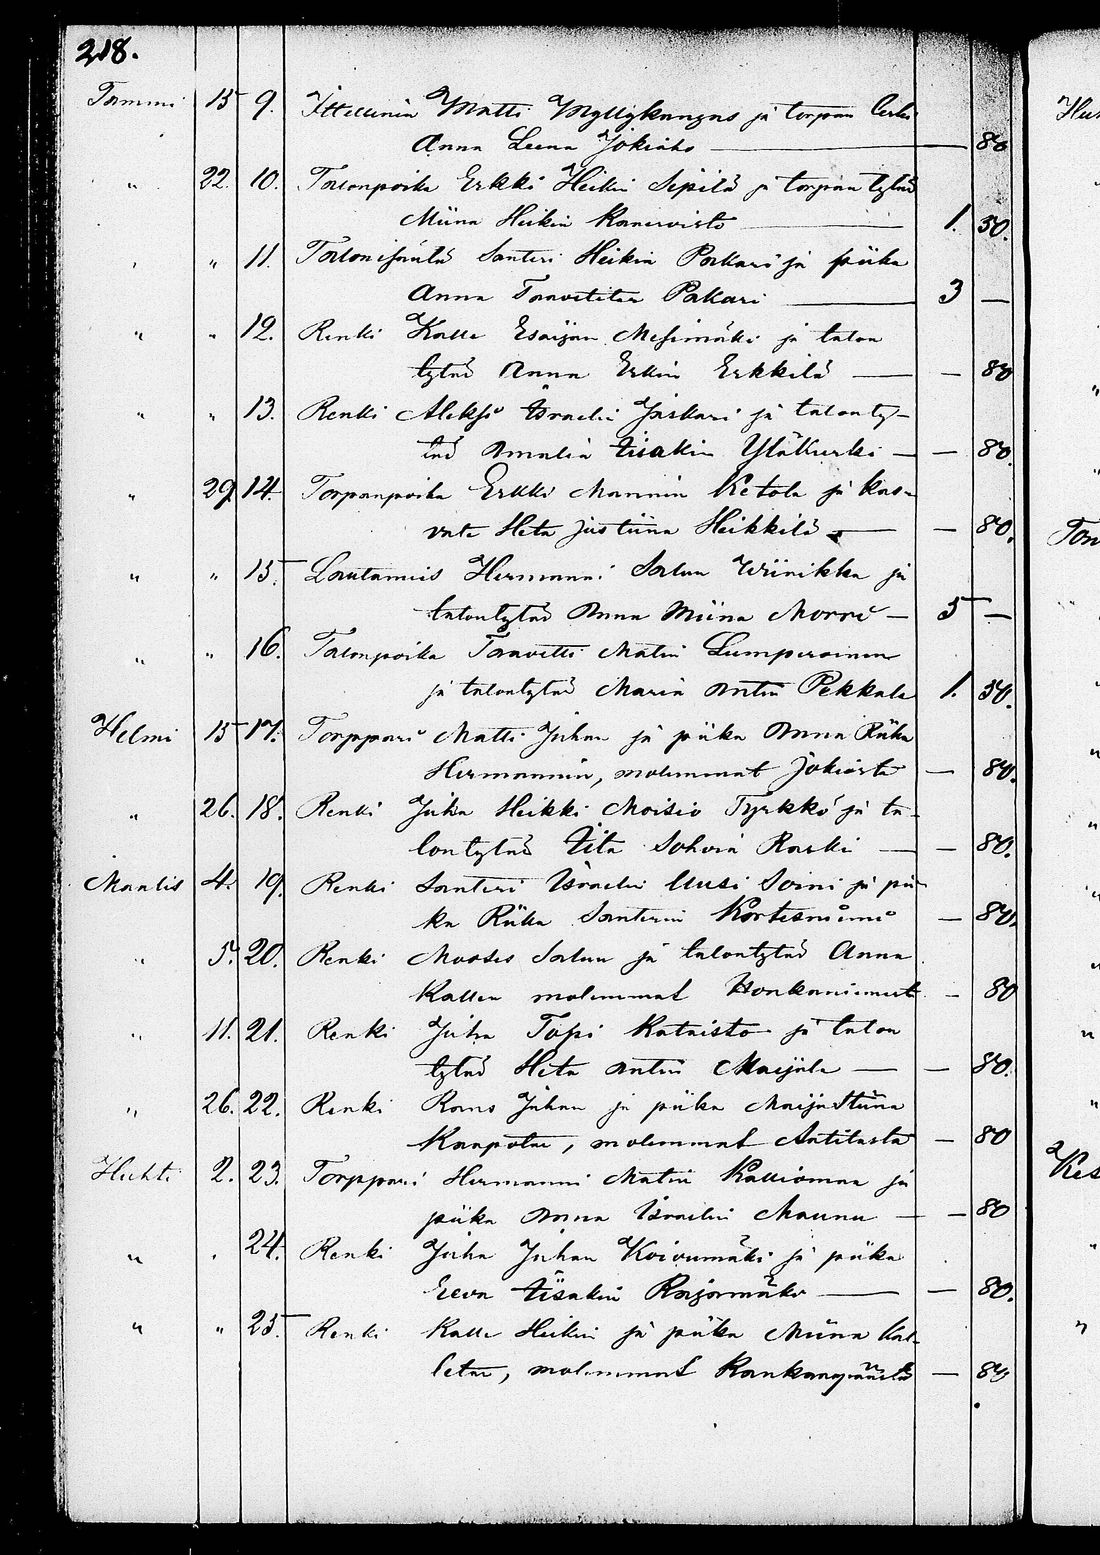 218.
Tammi 15 9. Ittellinin Matti Myllykangas ja torpan leski
Anna Leena Jokiaho — 80
" 22. 10. Talonpoika Erkki Heikin Sipilä ja torpan tytär
Miina Heikin Kanervisto — 1. 50.
" " 11. Talonisäntä Santeri Heikin Pakari ja piika
Anna Taavetitar Pakari — 3 —
" " 12. Renki Kalle Esaijan Mesimäki ja talon
tytär Anna Erkin Erkkilä — — 80
" " 13. Renki Aleksi Israelin Jaskari ja talonty-
tär Amalia Iisakin Yläkurki — — 80.
" 29 14. Torpanpoika Erkki Mannin Ketola ja kas-
vate Heta Justiina Heikkilä — — 80.
" " 15. Lautamies Hermanni Salun Wiinikka ja
talontytär Anna Miina Morri — 5 —
" " 16. Talonpoika Taavetti Matin Lumperoinen
ja talontytär Maria Antin Pekkala 1. 50.
Helmi 15 17. Torppari Matti Juhan ja piika Anna Riika
Hermannin, molemmat Jokiasta — 80.
" 26. 18. Renki Juha Heikki Moisio Tyrkkö ja ta-
lontytär Iita Sohvia Raski — — 80.
Maalis 4. 19. Renki Santeri Israelin Uusi Soini ja pii-
ka Riika Santerin Kortesniemi — 80.
" 5. 20. Renki Mooses Salun ja talontytär Anna
Kallen molemmat Honkaniemest — 80
" 11. 21. Renki Juha Topi Kataisto ja talon
tytär Heta Antin Maijala — — 80.
" 26. 22. Renki Rans Juhan ja piika Maija Stiina
Kaapotar, molemmat Antilasta — 80
Huhti 2. 23. Torppari Hermanni Matin Kalliomaa ja
piika Anna Israelin Maunu — — 80
" " 24. Renki Juha Juhan Koivumäki ja piika
Eeva Iisakin Rajamäki — — 80.
" " 25. Renki Kalle Heikin ja piika Miina Kal-
letar, molemmat Kankaanpäästä — 80